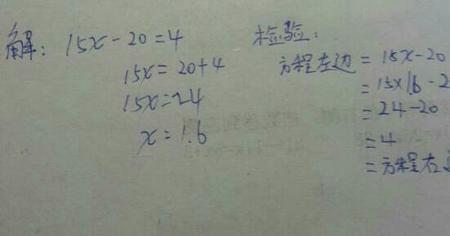 解: 15x-20=4
15x=20+4
15x=24
x=1.6
检验:
方程左边=15x-20
=15×1.6-2
=24-20
=4
=方程右